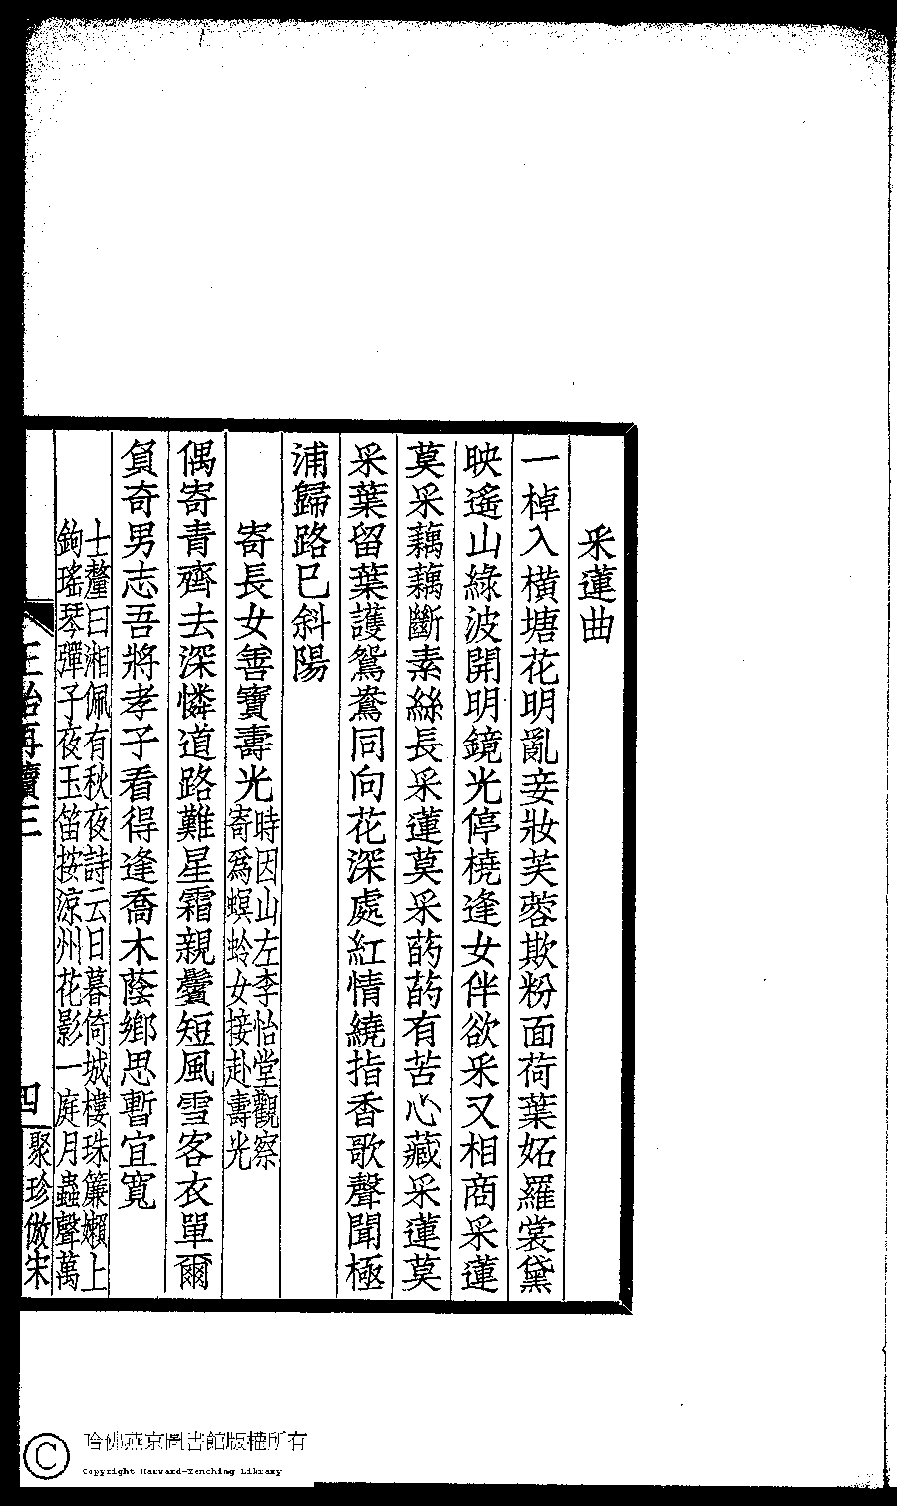 采蓮曲
一棹入橫塘花明亂妾妝芙蓉欺粉面荷葉妬羅裳黛
映遙山綠波開明鏡光停橈逢女伴欲采又相商采蓮
莫采藕藕斷素絲長采蓮莫采菂菂有苦心藏采蓮莫
采葉留葉護鴛鴦同向花深處紅情繞指香歌聲聞極
浦歸路已斜陽
寄長女善寶壽光
時因山左李怡堂觀察
寄爲螟蛉女接赴壽光
偶寄青齊去深憐道路難星霜親鬢短風雪客衣單爾
負奇男志吾將孝子看得逢喬木蔭鄉思暫宜寬
士釐曰湘佩有秋夜詩云日暮倚城樓珠簾嬾上
鉤瑤琴彈子夜玉笛按涼州花影一庭月蟲聲萬
再續三
四
聚珍倣宋
哈佛燕京圖書館版權所有
Copyright Harvard-Yenching Library